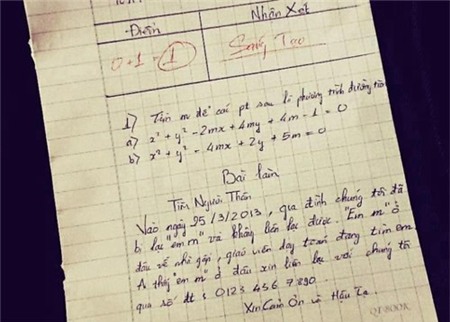 Điểm
Nhận Xét
0+1=1
Sáng Tạo
1) Tìm m để các pt sau là phương trình đường tròn
a) x² + y² - 2mx + 4my + 4m - 1 = 0
b) x² + y² - 4mx + 2y + 5m = 0
Bài làm
Tìm Người Thân
Vào ngày 25/3/2013, gia đình chúng tôi đã
bị lạc "em m" và không liên lạc được. "Em m" ở
đâu về nhà gấp, giáo viên dạy toán đang tìm em.
Ai thấy "em m" ở đâu xin liên lạc với chúng tôi
qua số đt : 0123 456 7890
Xin Cảm Ơn và Hậu Tạ